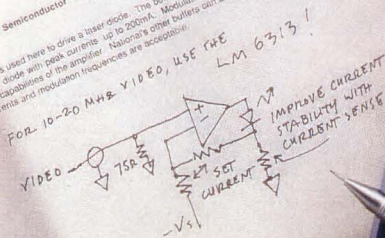 Semiconductor
s used here to drive a laser diode. The
diode with peak currents up to 200mA.
capabilities of the amplifier. National's other buffers can
ents and modulation frequencies are acceptable.
FOR 10-20 MHz VIDEO, USE THE
LM6313!
VIDEO
75Ω
+
-
IMPROVE CURRENT
STABILITY WITH
CURRENT SENSE
SET
CURRENT
-Vs